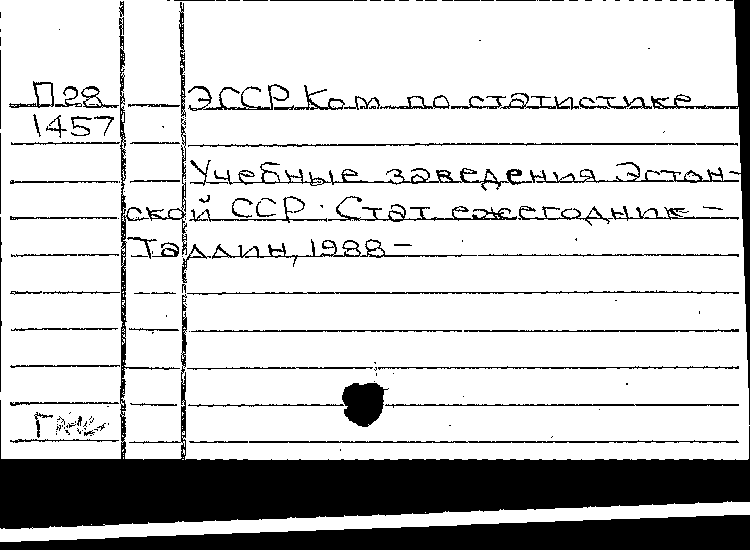 П28 ЭССР Ком по статистике
1457
Учебные заведения Эстон-
ской ССР : Стат. ежегодник –
Таллин, 1988 –